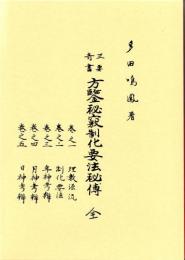 多田鳴鳳著
三要
奇書
方鑒秘竅制化要法秘傳 全
巻之一 理教源流
巻之二 制化要法
巻之三 年神考辨
巻之四 月神考辨
巻之五 日神考辨